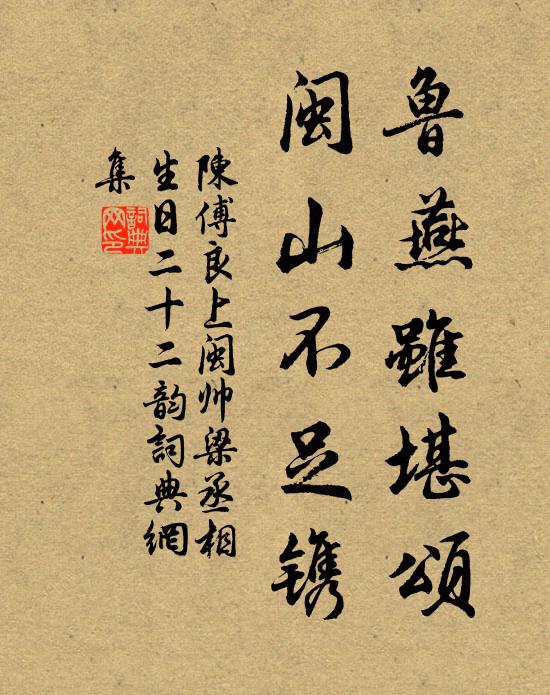 魯燕雖堪頌
閩山不足镌
陳傅良上閩帅梁丞相
生日二十二韵詞典網
集
詞典网印